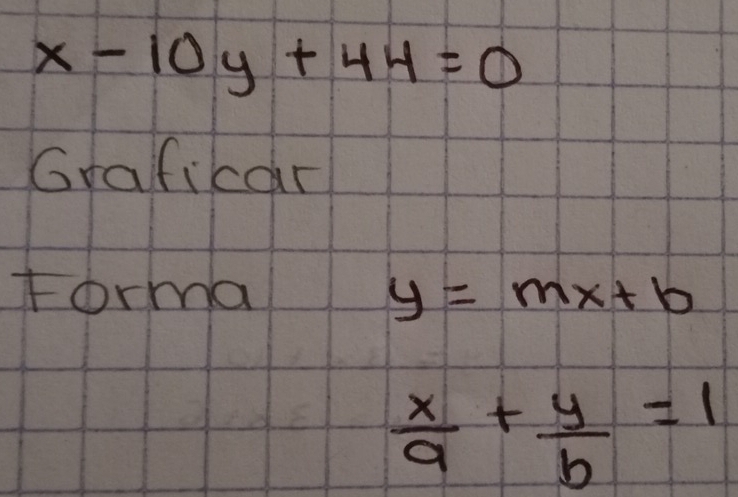 x - 10y + 44 = 0
Graficar
Forma y = mx + b
x/a + y/b = 1